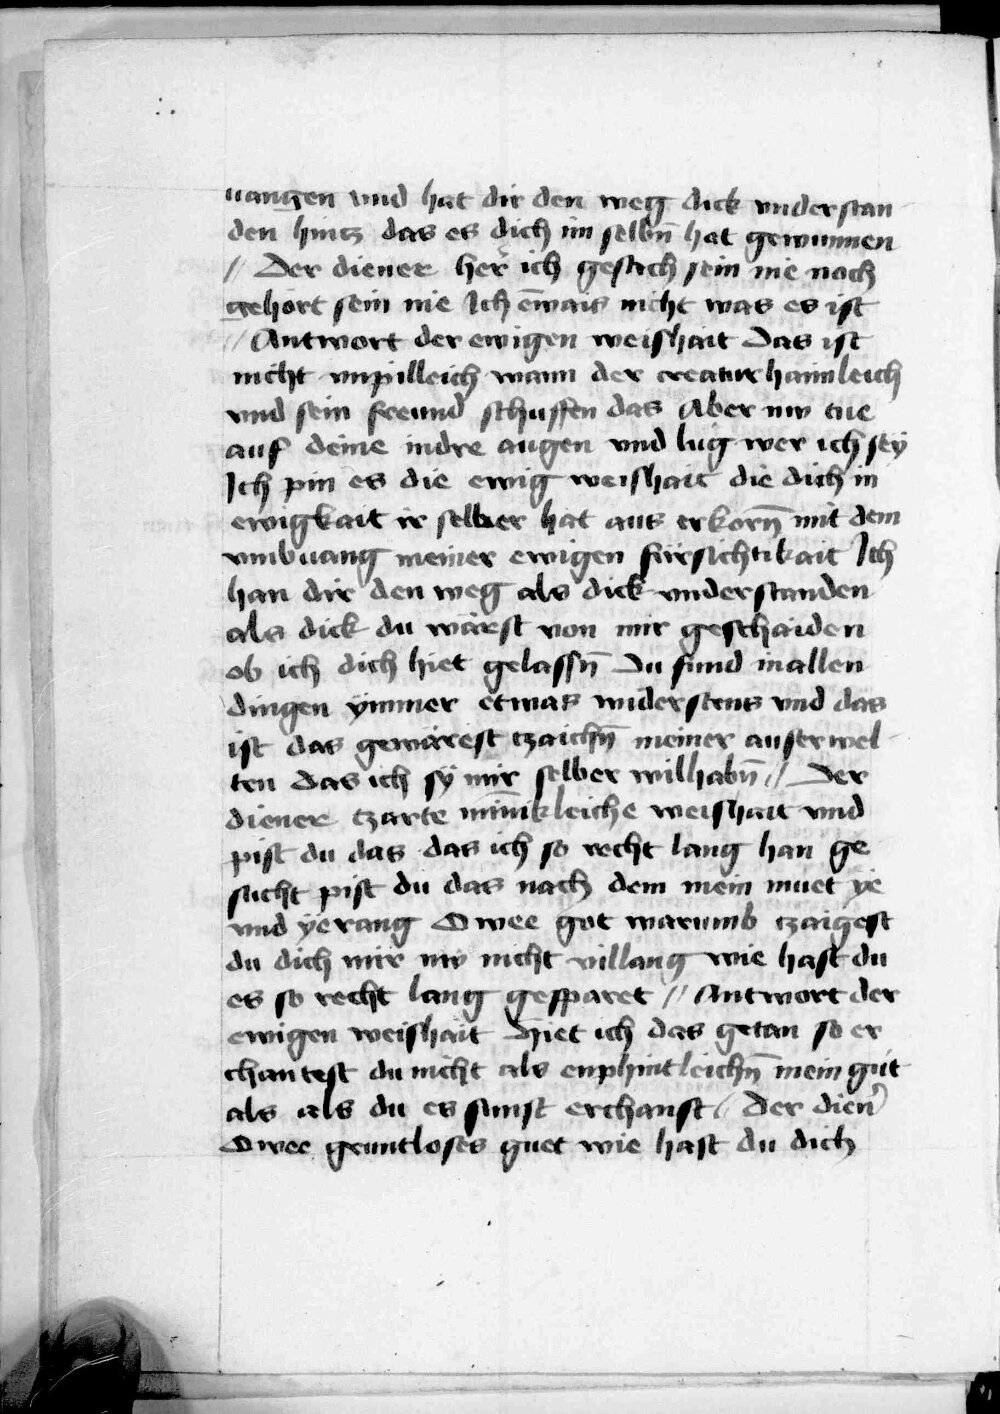 uangen vnd hat dir den weg dick vnderstan
den hintz das es dich im selbñ hat gewunnen
// Der diener her ich gesach sein nie noch
gehort sein nie Ich eñwais nicht was es ist
// Antwort der ewigen weishait Das ist
nicht vnpilleich wann der creatur haimleich
vnd sein freund schuffen das Aber nw tue
auf deine indre augen vnd lug wer ich sey
Ich pin es die ewig weishait die dich in
ewigkait ir selber hat aus erkorñ mit dem
vmbuang meiner ewigen fürsichtikait Ich
han dir den weg als dick vnderstanden
als dick du wärst von mir geschaiden
ob ich dich hiet gelassñ Du fund in allen
dingen ymmer etwas widerstens vnd das
ist das gewärest tzaichñ meiner auserwel
ten das ich sy mir selber wil habñ // Der
diener tzarte miñikleiche weishait vnd
pist du das das ich so recht lang han ge
sucht pist du das nach dem mein muet ye
vnd ye rang O wee got warumb tzaigest
du dich mir nw nicht vil lang wie hast du
es so recht lang gesparet // Antwort der
ewigen weishait Hiet ich das getan so er
chantest du nicht als enphintleichñ mein gut
als als du es sunst erchanst // Der dien̛
O wee gruntloses guet wie hast du dich